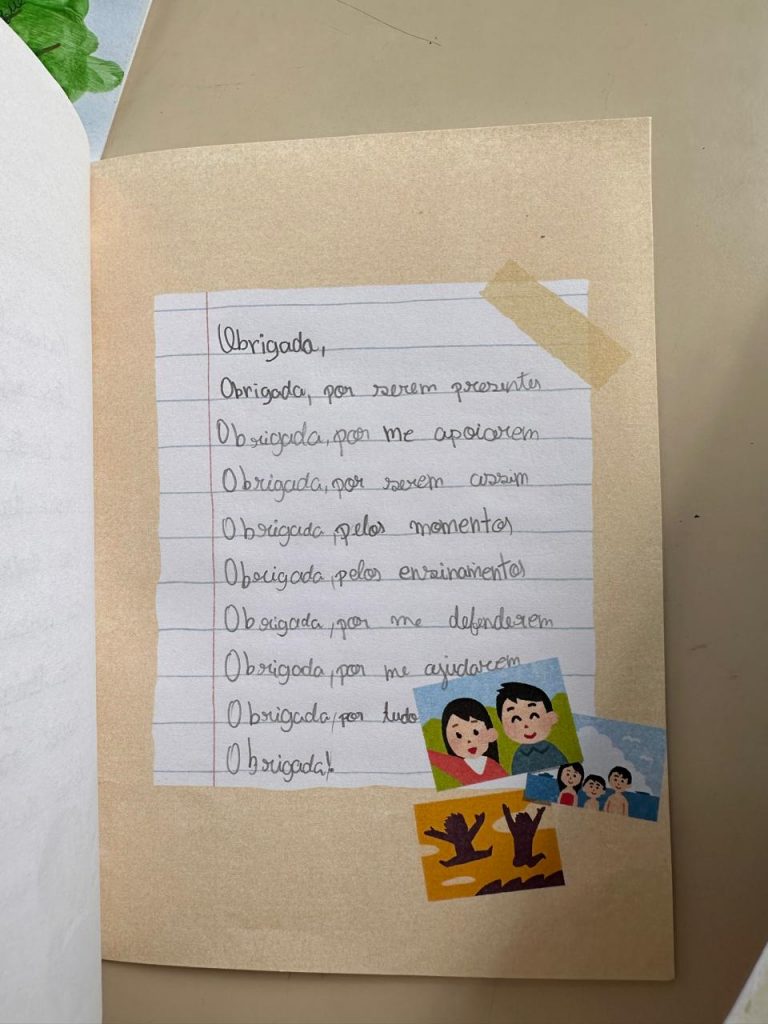 Obrigada,
Obrigada, por serem presentes
Obrigada, por me apoiarem
Obrigada, por serem assim
Obrigada, pelos momentos
Obrigada, pelos ensinamentos
Obrigada, por me defenderem
Obrigada, por me ajudarem
Obrigada, por tudo
Obrigada!